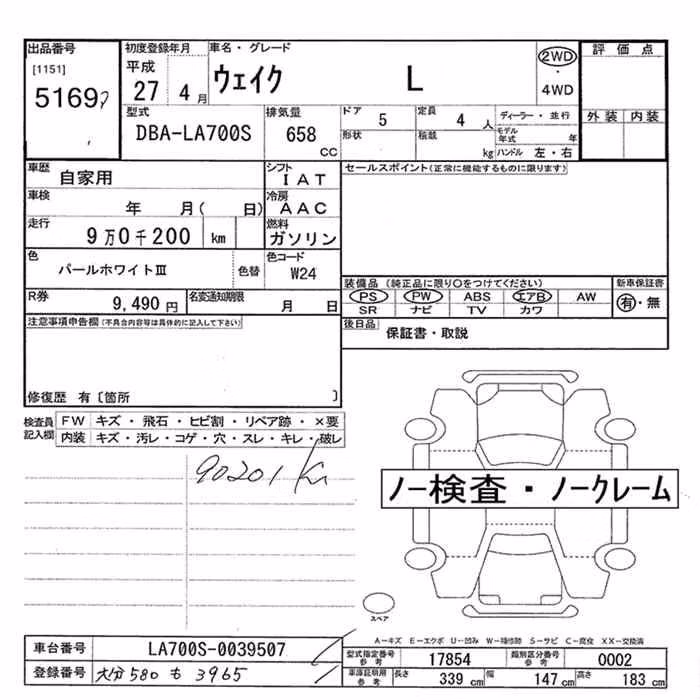 出品番号
[1151]
5169
初度登録年月
平成
27 4 月
車名・グレード
ウェイク L
2WD
・
4WD
評価点
外装 内装
型式
DBA-LA700S
排気量
658
CC
ドア 5
定員 4 人
形状
積載 kg
ディーラー・並行
モデル年式 年
ハンドル 左・右
車歴 自家用
シフト IAT
車検 年 月( 日)
冷房 AAC
走行 9万0千200 km
燃料 ガソリン
色 パールホワイトⅢ 色替
色コード W24
R券 9,490 円
名変通知期限 月 日
注意事項申告欄(不具合内容等は具体的に記入して下さい)
修復歴 有〔箇所 〕
セールスポイント(正常に機能するものに限ります)
装備品 (純正品に限り○をつけてください)
新車保証書
PS PW ABS エアB AW
SR ナビ TV カワ
有・無
後日品 保証書・取説
検査員記入欄
FW キズ・飛石・ヒビ割・リペア跡・×要
内装 キズ・汚レ・コゲ・穴・スレ・キレ・破レ
90201 K
ノー検査・ノークレーム
スペア
A-キズ E-エクボ U-凹み W-補修跡 S-サビ C-腐食 XX-交換済
車台番号 LA700S-0039507
登録番号 大分 580 も 3965
型式指定番号 参考 17854
類別区分番号 参考 0002
車庫証明用 参考
長さ 339 cm
幅 147 cm
高さ 183 cm